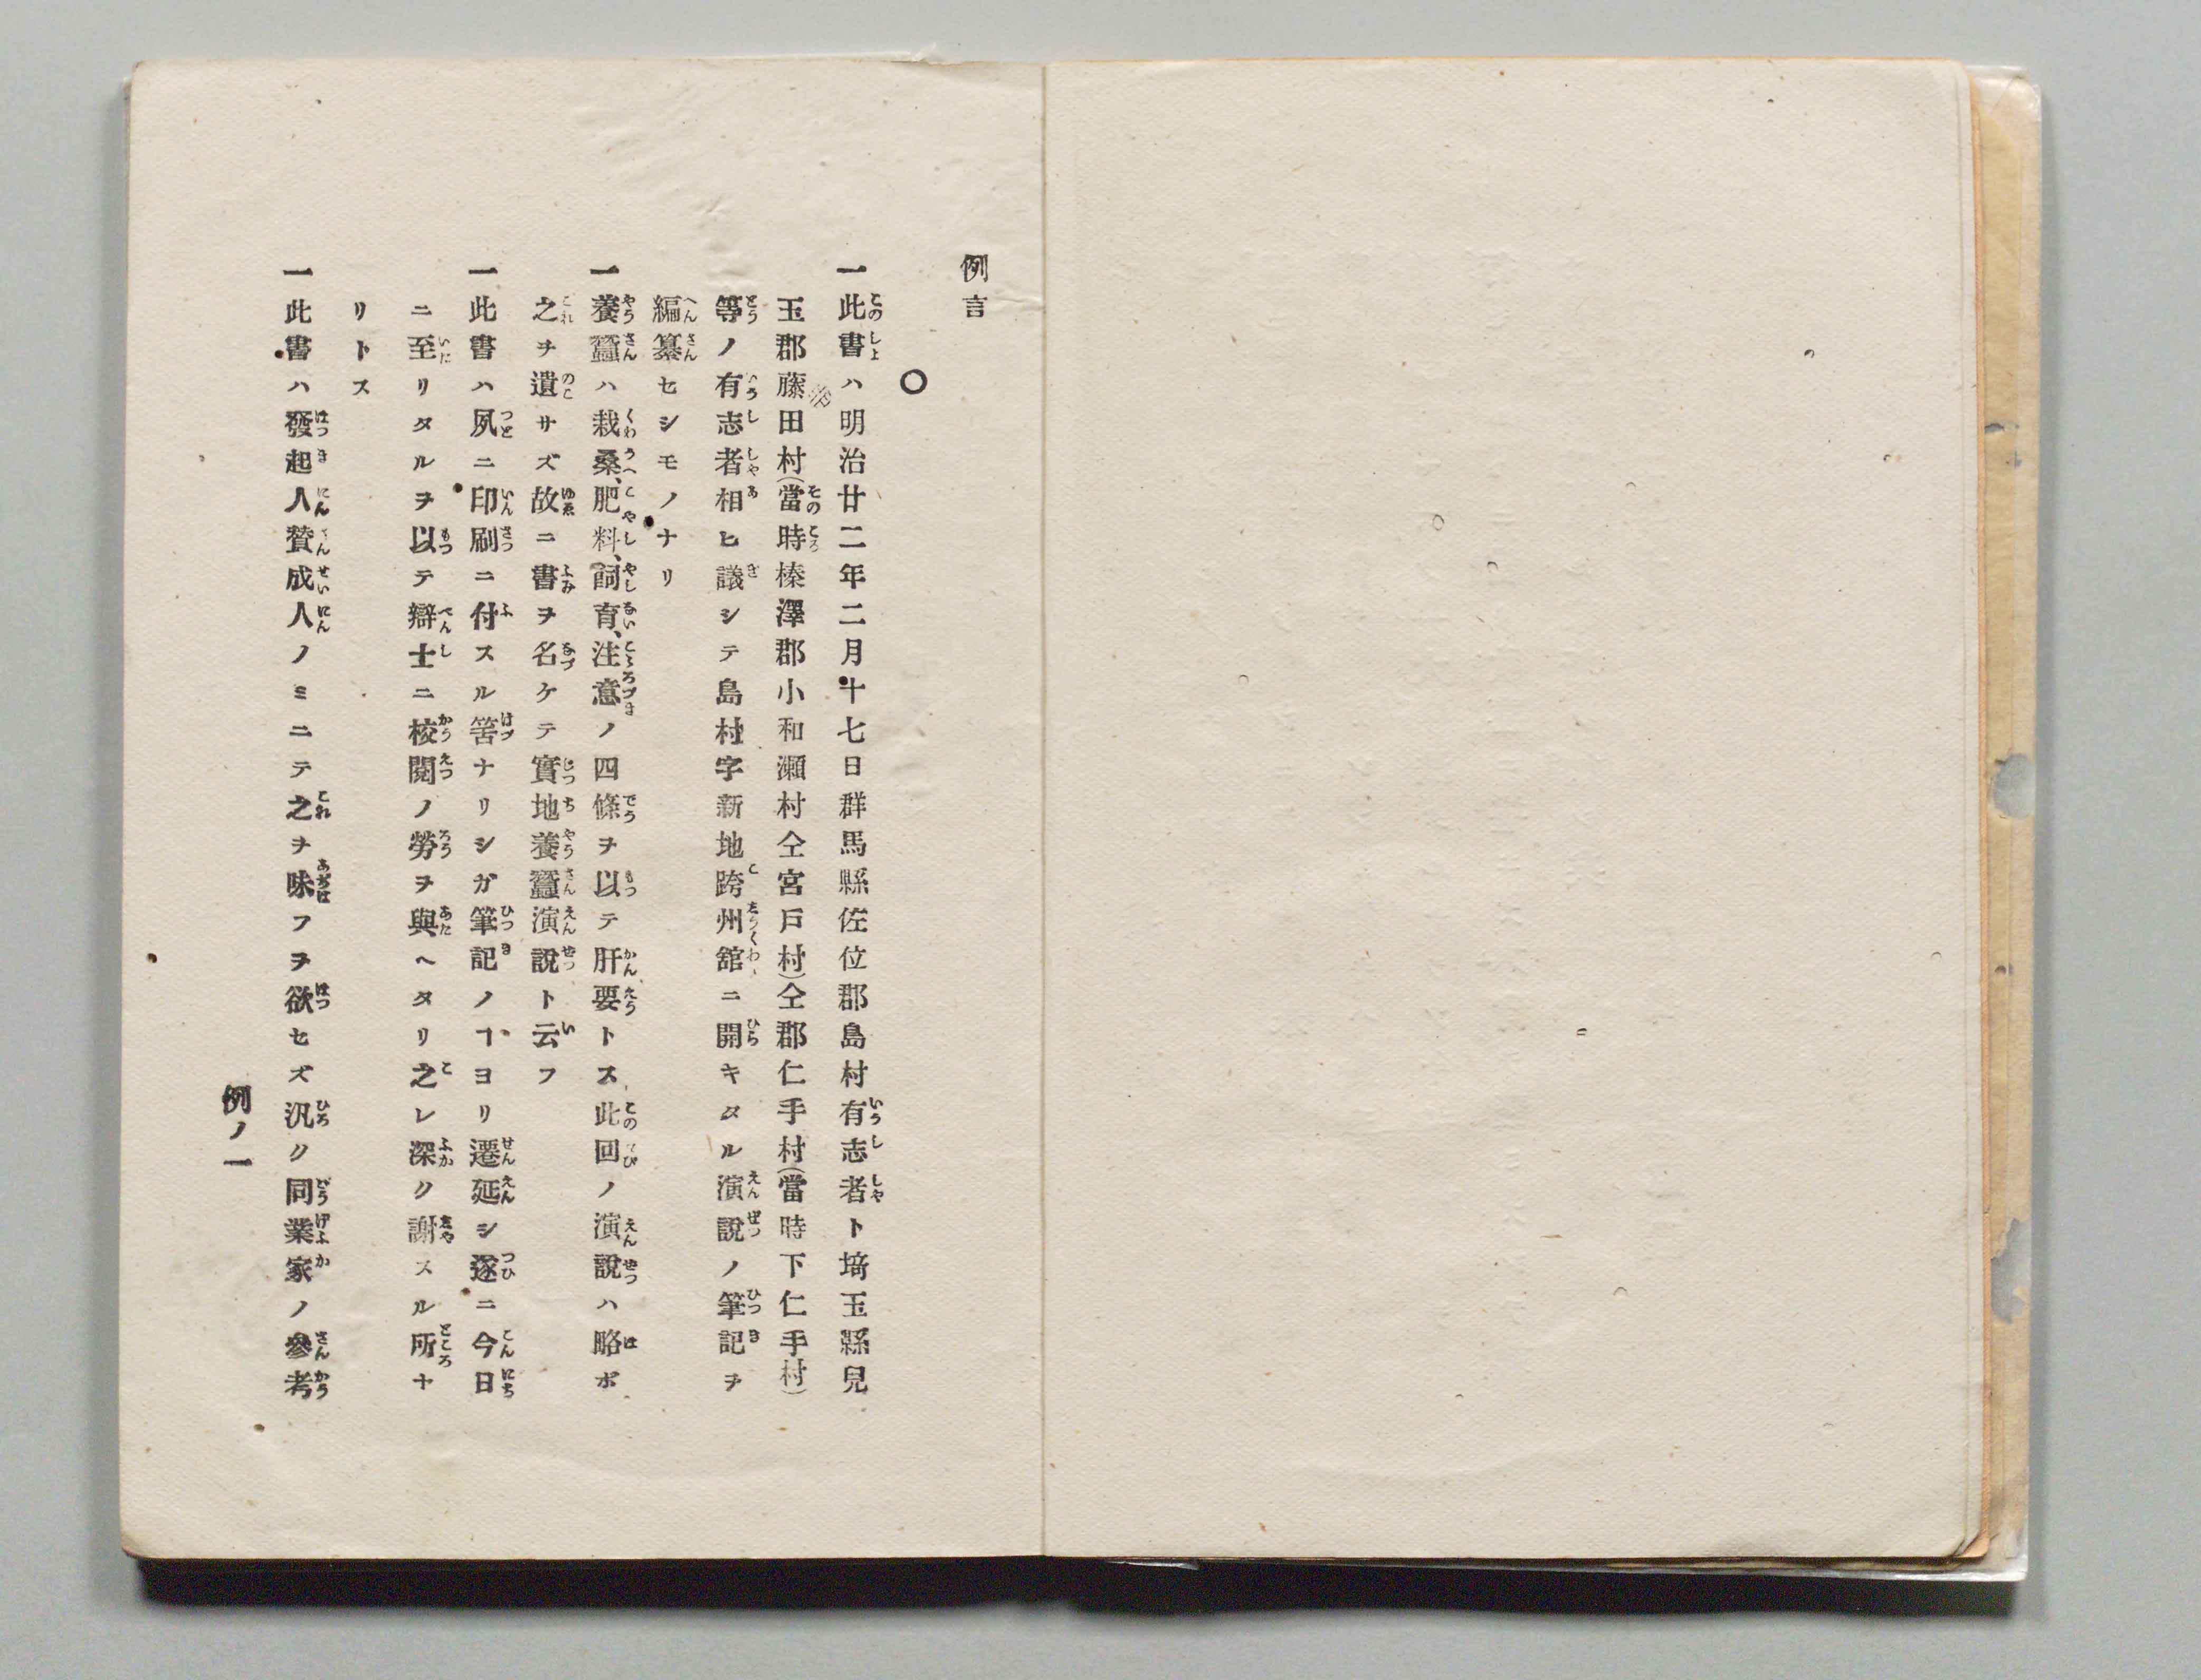 例言
○
一此書ハ明治廿二年二月十七日群馬縣佐位郡島村有志者ト埼玉縣兒
玉郡藤田村(當時榛澤郡小和瀬村仝宮戸村)仝郡仁手村(當時下仁手村)
等ノ有志者相ヒ議シテ島村字新地跨州舘ニ開キタル演說ノ筆記ヲ
編纂セシモノナリ
一養蠶ハ栽桑、肥料、飼育、注意ノ四條ヲ以テ肝要トス此回ノ演說ハ略ボ
之ヲ遺サズ故ニ書ヲ名ケテ實地養蠶演說ト云フ
一此書ハ夙ニ印刷ニ付スル筈ナリシガ筆記ノヿヨリ遷延シ遂ニ今日
ニ至リタルヲ以テ辯士ニ校閱ノ勞ヲ與ヘタリ之レ深ク謝スル所ナ
リトス
一此書ハ發起人贊成人ノミニテ之ヲ味フヲ欲セズ汎ク同業家ノ參考
例ノ一